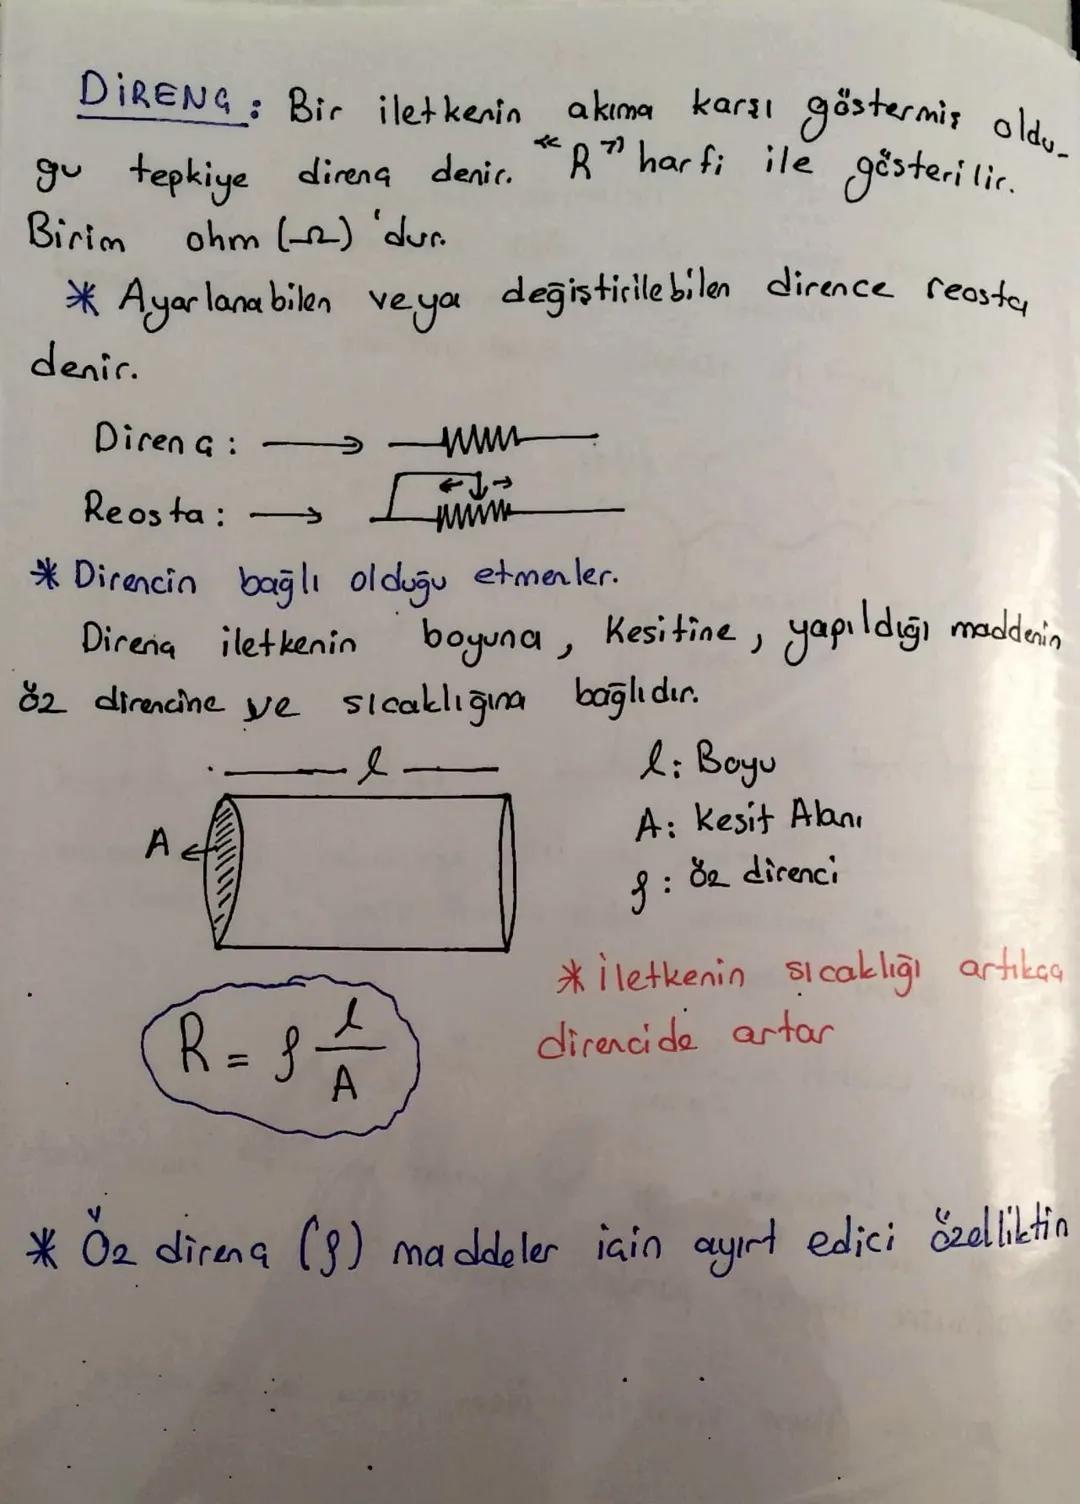 DİRENÇ : Bir iletkenin akıma karşı göstermiş oldu-
ğu tepkiye direnç denir. "R" harfi ile gösterilir.
Birim ohm (Ω) 'dur.
* Ayarlanabilen veya değiştirilebilen dirence reosta
denir.
Direnç : →
Reosta : →
* Direncin bağlı olduğu etmenler.
Direnç iletkenin boyuna , Kesitine , yapıldığı maddenin
öz direncine ve sıcaklığına bağlıdır.
l
l : Boyu
A
A : Kesit Alanı
ρ : öz direnci
* İletkenin sıcaklığı artıkça
direncide artar
R = ρ l/A
* Öz direnç (ρ) maddeler için ayırt edici özelliktir